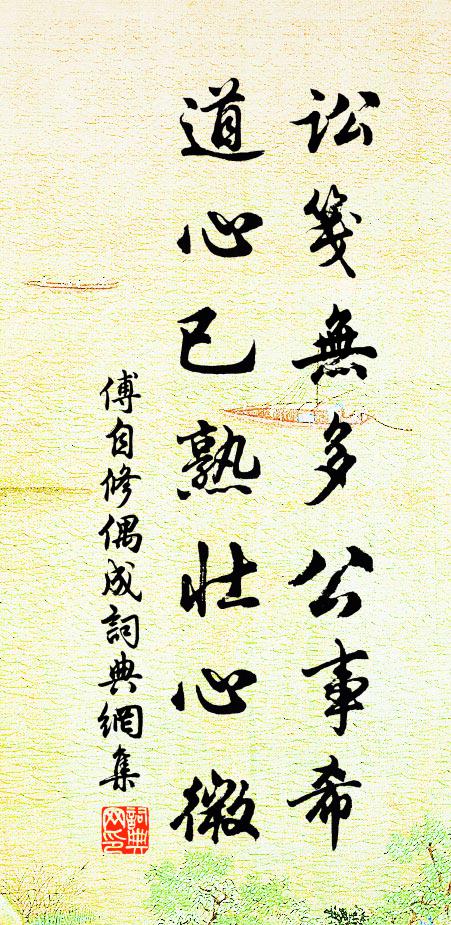 訟箋無多公事希
道心已熟壯心微
傅自修偶成詞典網集
詞典網印